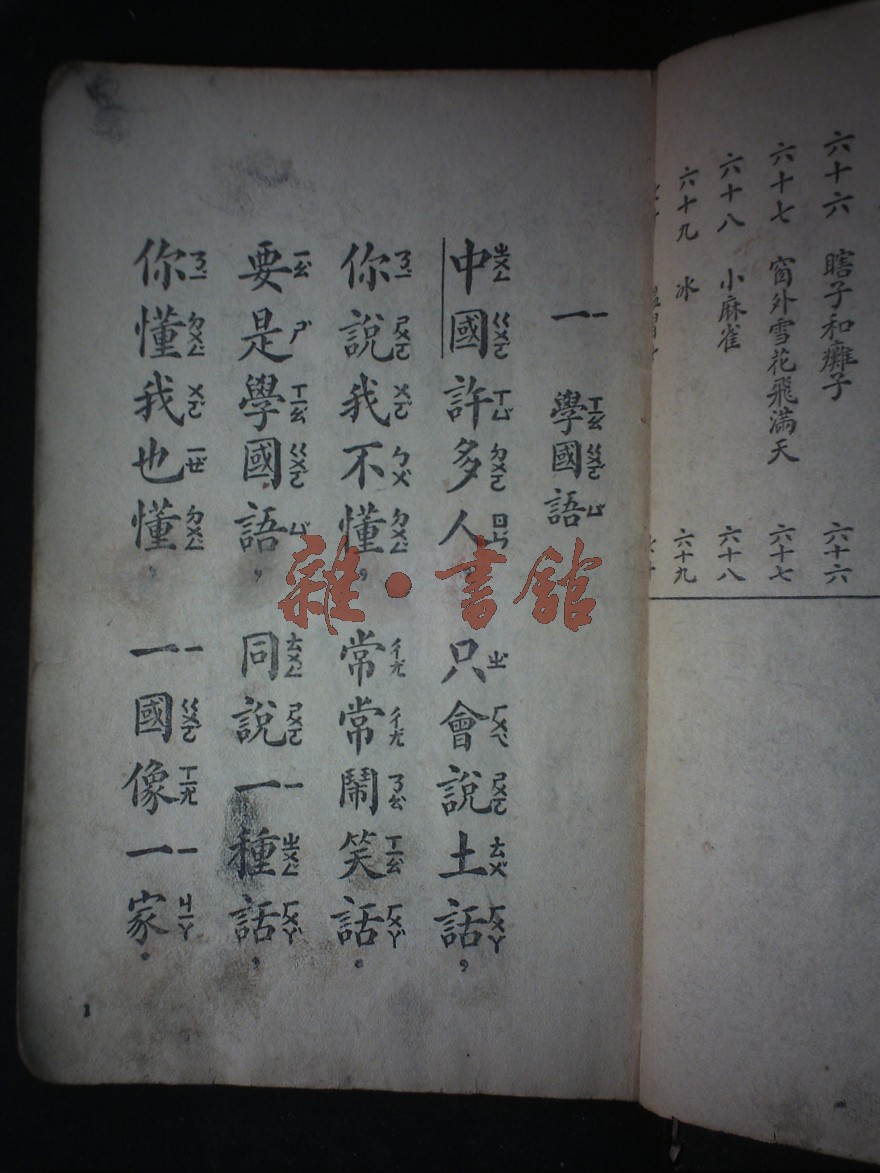 六十六 瞎子和癱子 六十六
六十七 窗外雪花飛滿天 六十七
六十八 小麻雀 六十八
六十九 冰 六十九
一 學國語
中國許多人，只會說土話，
你說我不懂，常常鬧笑話。
要是學國語，同說一種話，
你懂我也懂，一國像一家。
1
雜·書館